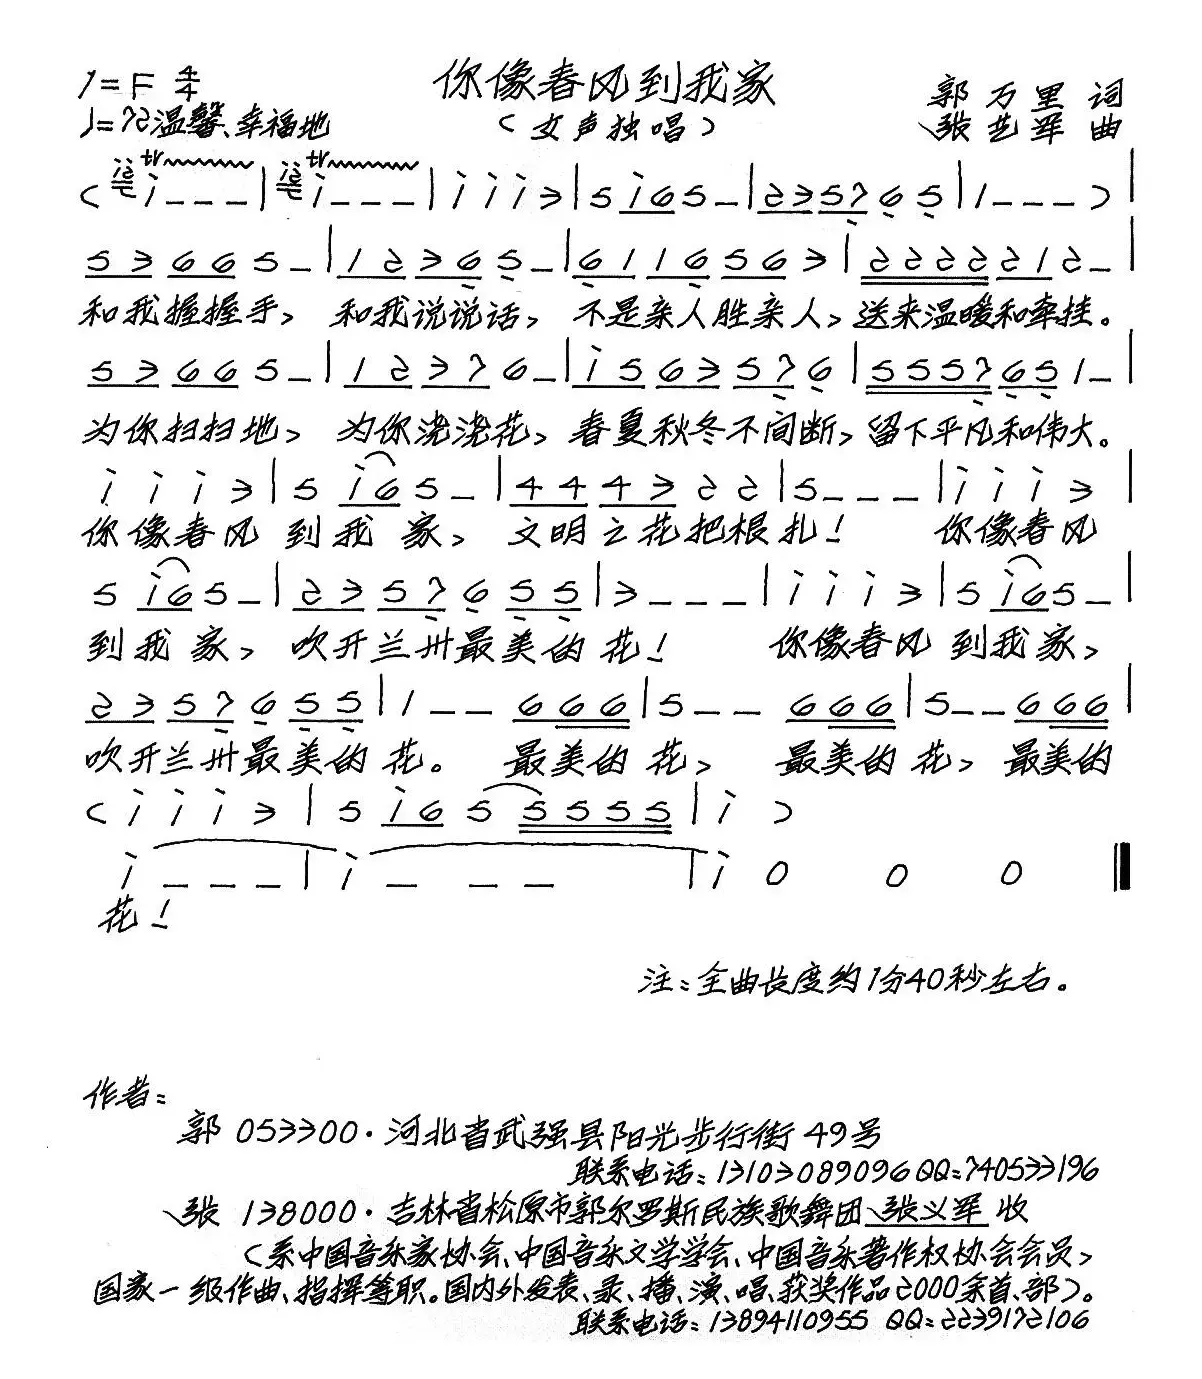 1=F 4/4
你像春风到我家
郭万里 词
♩=72 温馨、幸福地
（女声独唱）
张艺军 曲
( i - - - | i - - - | i i i 3 | 5 i 6 5 - | 2 3 5 7 6 5 | 1 - - - )
5 3 6 6 5 - | 1 2 3 6 5 - | 6 1 1 6 5 6 3 | 2 2 2 2 2 1 2 - |
和我握握手, 和我说说话, 不是亲人胜亲人, 送来温暖和牵挂。
5 3 6 6 5 - | 1 2 3 7 6 - | i 5 6 3 5 7 6 | 5 5 5 7 6 5 1 - |
为你扫扫地, 为你浇浇花, 春夏秋冬不间断, 留下平凡和伟大。
i i i 3 | 5 i 6 5 - | 4 4 4 3 2 2 | 5 - - - | i i i 3 |
你像春风 到我家, 文明之花把根扎! 你像春风
5 i 6 5 - | 2 3 5 7 6 5 5 | 3 - - - | i i i 3 | 5 i 6 5 - |
到我家, 吹开兰州最美的花! 你像春风 到我家,
2 3 5 7 6 5 5 | 1 - - 6 6 6 | 5 - - 6 6 6 | 5 - - 6 6 6 |
吹开兰州最美的花。 最美的花, 最美的花, 最美的
( i i i 3 | 5 i 6 5 5 5 5 5 | i )
i - - - | i - - - | i 0 0 0
花!
注:全曲长度约1分40秒左右。
作者:
郭 053300·河北省武强县阳光步行街49号
联系电话:13103089096 QQ:740533196
张 138000·吉林省松原市郭尔罗斯民族歌舞团 张义军 收
(系中国音乐家协会、中国音乐文学学会、中国音乐著作权协会会员,
国家一级作曲、指挥等职。国内外发表、录、播、演、唱、获奖作品2000余首、部)。
联系电话:13894110955 QQ:2239172106